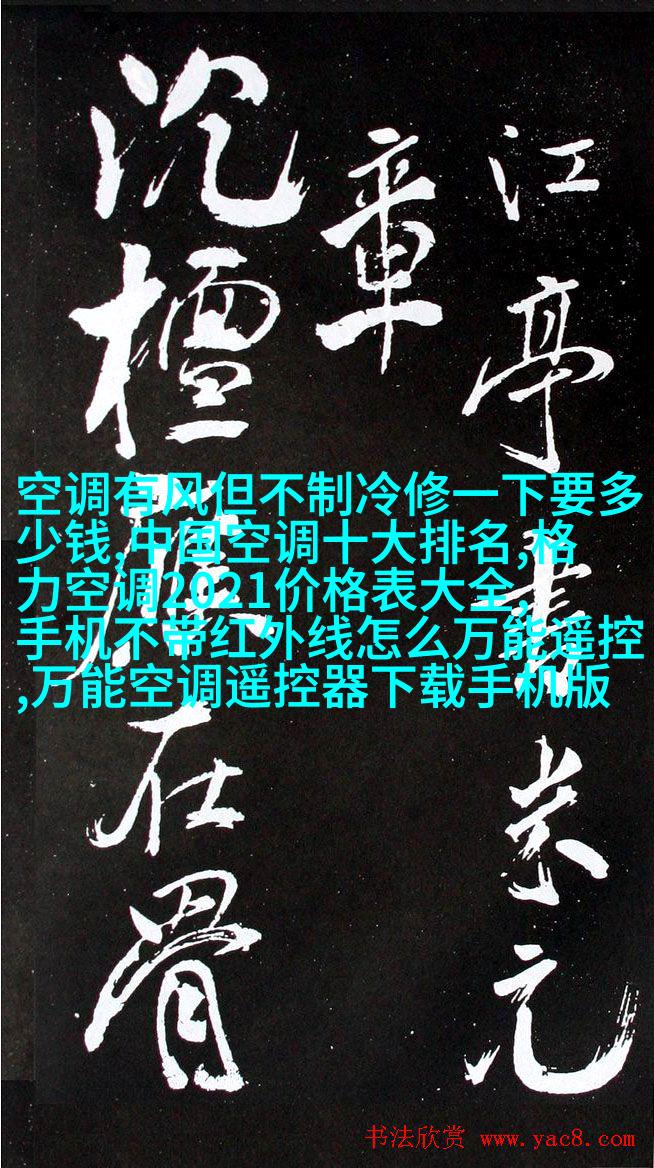 江亭書米元
章
沉檀在骨
空调有风但不制冷修一下要多
少钱,中国空调十大排名,格
力空调2021价格表大全,
手机不带红外线怎么万能遥控
,万能空调遥控器下载手机版
书法欣赏 www.yac8.com